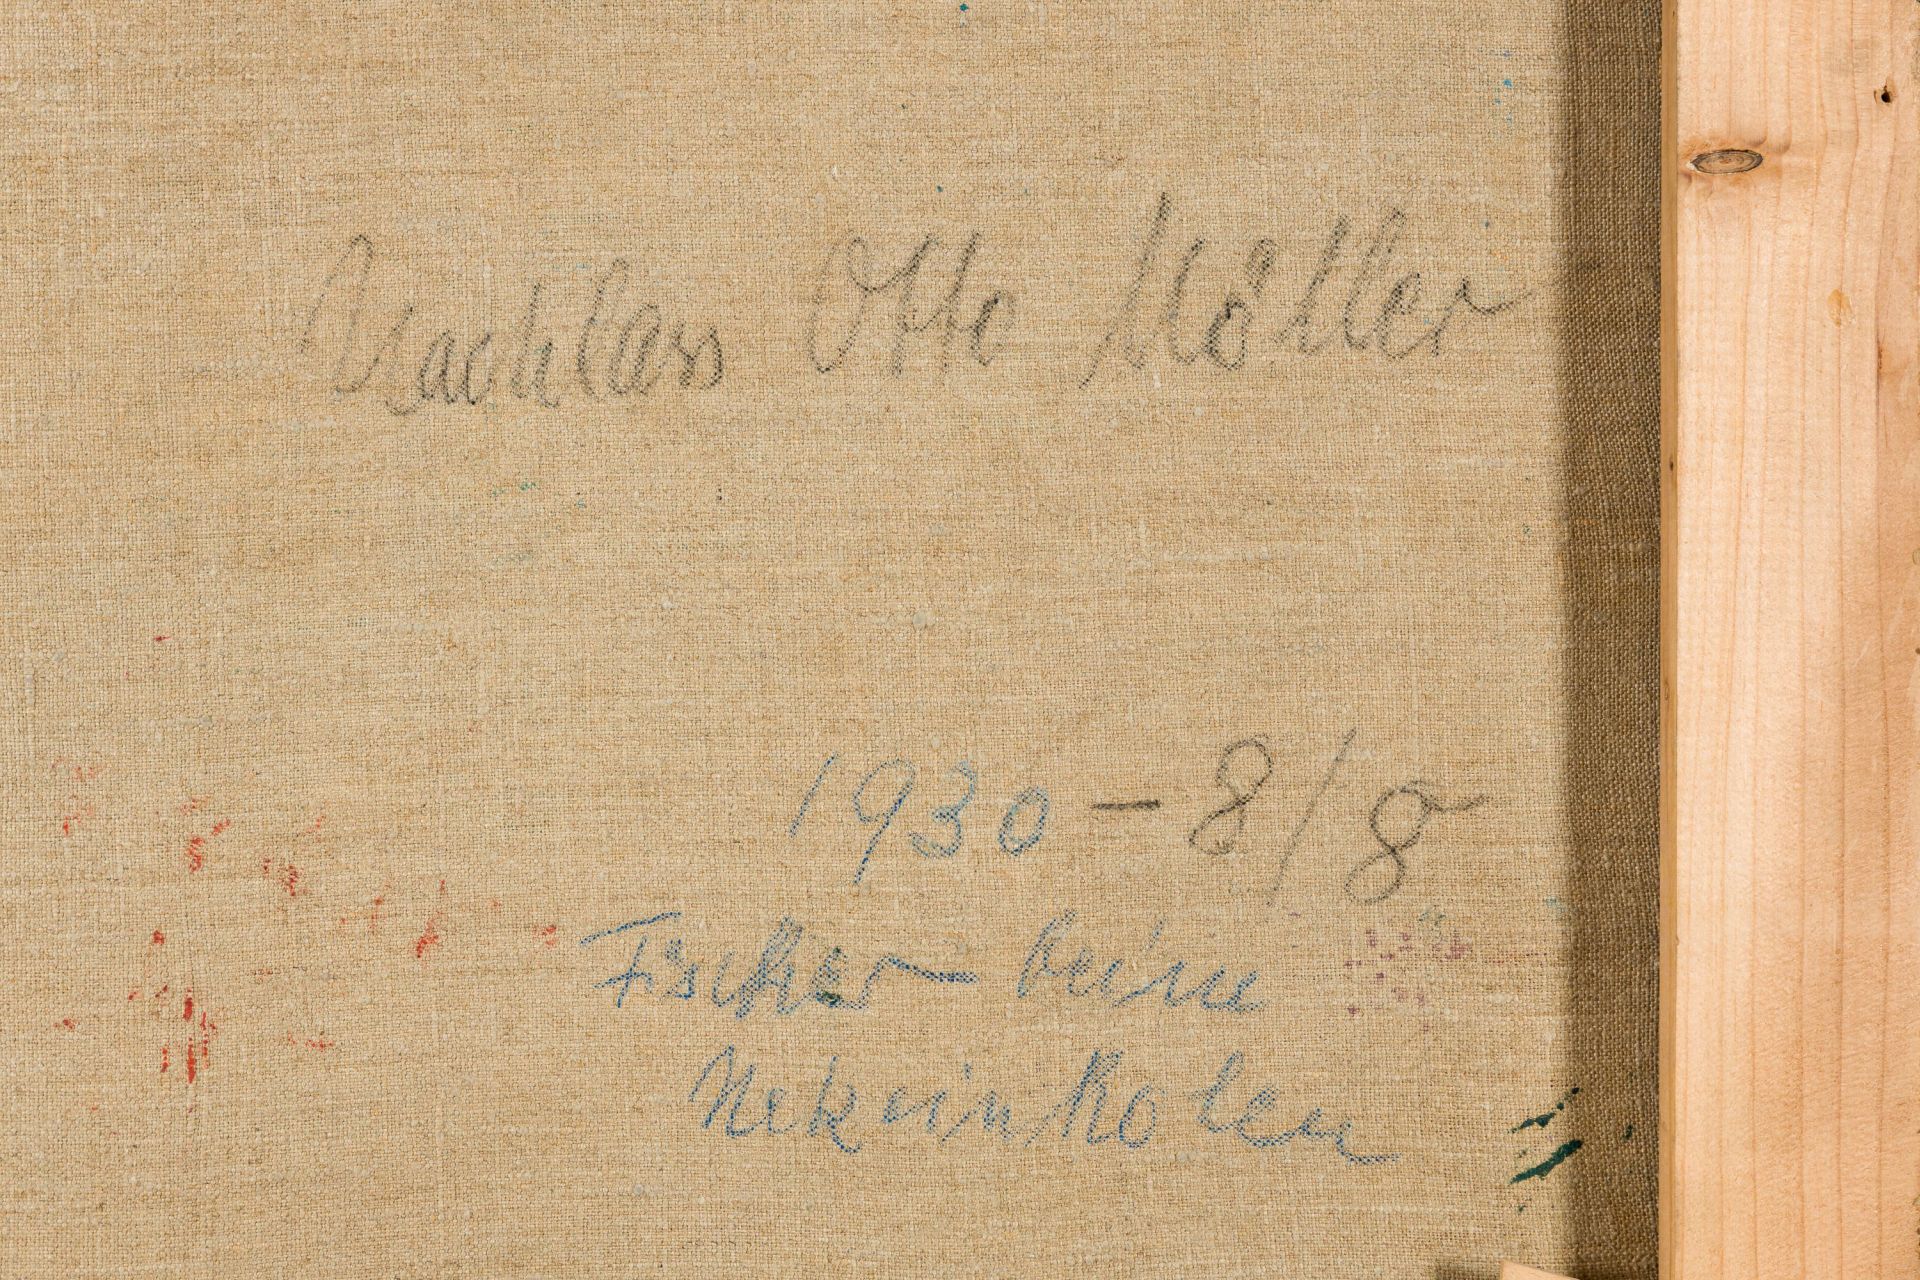 Nachlass Otto Möller
1930 – 8/8
Fischer beim
Netzeinholen